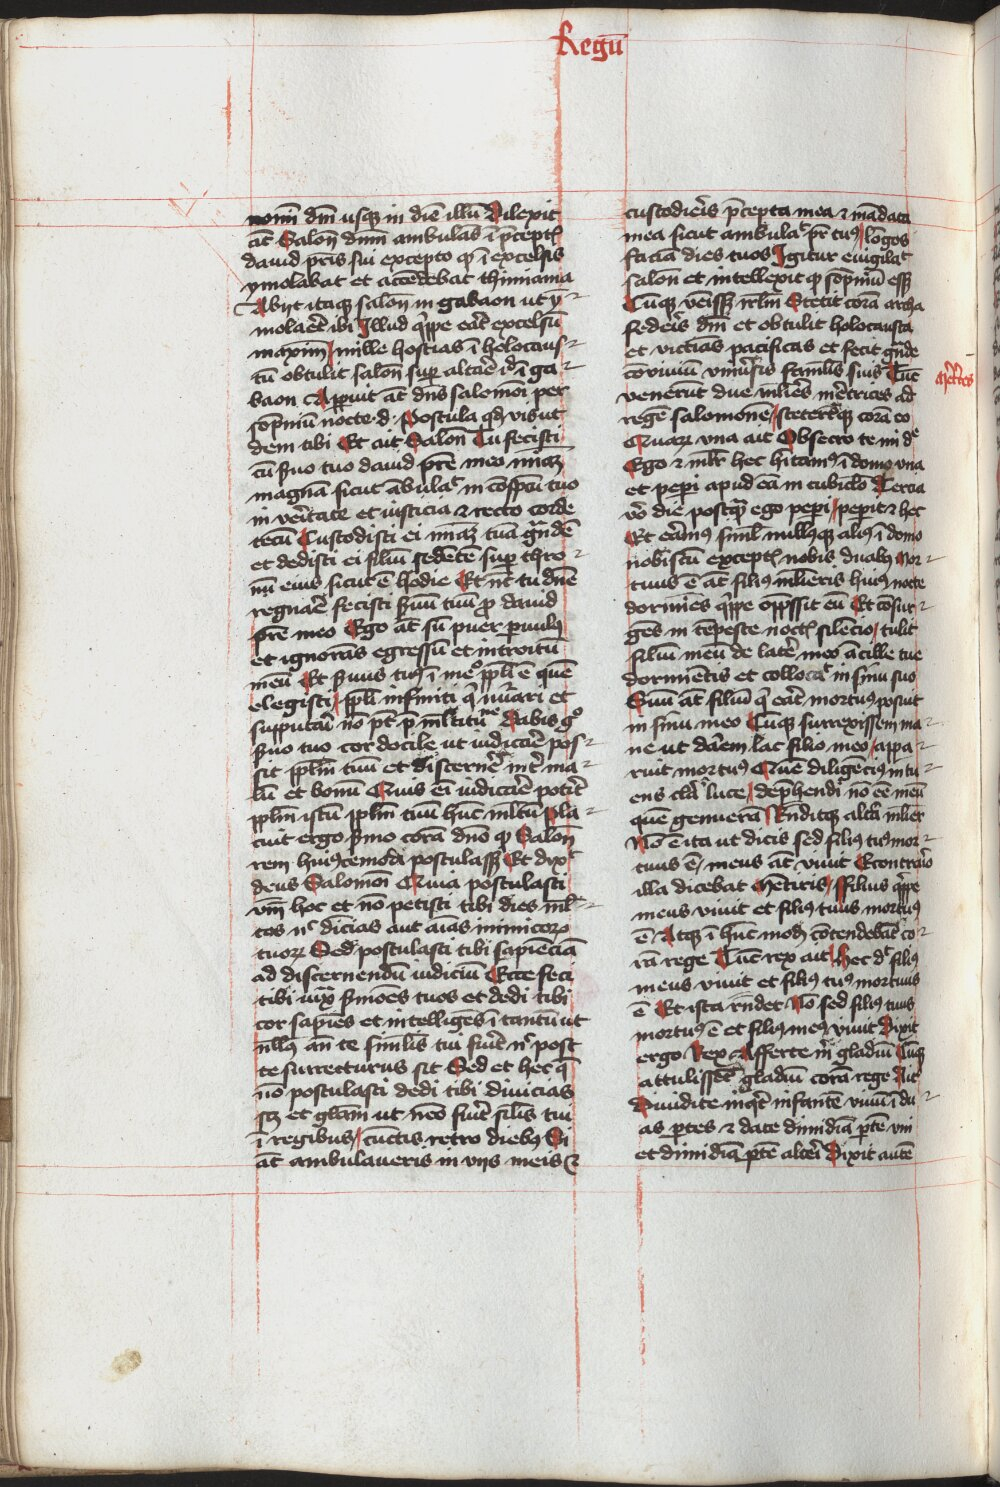 Regū
nomī dm̄ usqꝫ in diē illū Dilexit
aūt Salon̄ dnm̄ ambulās ī p̄cept
dauid pr̄is sui excepto qꝫ ī excelsis
ymolabat et accēdebat thimiama
Abijt itaqꝫ salon̄ in gabaon ut y-
molaet̄ ibi Illud q̄ppe eāt excelsū
maximū mille hostias ī holocaus-
tū obtulit salon̄ suꝑ altaē id̄ ī ga-
baon Apꝑuit āt dn̄s salemōi per
sōpniū nocte d. Postula qd̄ vis ut
dem tibi Et ait Salon̄ Tu fecisti
cū ẜuo tuo dauid pr̄e meo mīaꝫ
magnā sicut ābulaᵗ in cōspcū tuo
in vēitate et iusticia ⁊ recto corde
tecū Custodisti ei mīaꝫ tuā gͣndē
et dedisti ei filiū sedēte suꝑ thro-
nū eius sicut ē hodie Et nc̄ tu dn̄e
regnaē fecisti ẜuū tuū ꝓ dauid
pr̄e meo Ego āt sū puer ꝑuulꝰ
et ignorās egressū et introitū
meū Et ẜuus tuꝰ ī meº ppl̄i ē quē
elegisti ppl̄i infiniti q̄ nūari et
supputaī nō pt̄ p̄ ml̄titune Dabis gº
ẜuo tuo cor docile ut iudicaē pos-
sit ppl̄m tuū et discerneē int̄ ma-
lū et bonū Quis eī iudicaē potit̄
ppl̄m istū ppl̄m tuū hūc ml̄tū Pla-
cuit ergo ẜmo corā dn̄o qꝫ Salon̄
rem huiꝰcemodi postulassꝫ Et dixᵗ
deus Salomōi Quia postulasti
vm̄ hoc et nō petisti tibi dies ml̄-
tos nͨ diuicias aut aīas inimicoꝝ
tuoꝝ Sed postulasti tibi sapiēciā
ad discernendū iudiciū Ecce feci
tibi iuxͣ ẜmōes tuos et dedi tibi
cor sapiēs et intelligēs ī tantū ut
nll̄ꝰ an̄ te simil̄is tui fuēt nͨ post
te surrecturus sit Sed et hec q̄
nō postulasti dedi tibi diuicias
sꝫ et gl̄am ut nēo fuēt sil̄is tui
ī regibus cūctis retro diebꝰ Si
āt ambulaueris in vijs meis ⁊
custodieris p̄cepta mea ⁊ mādata
mea sicut ambulaᵗ pr̄ tuꝰ lōgos
faciā dies tuos Igitur euigilaᵗ
salon̄ et intellexit qꝫ sōpniū essꝫ
Cūqꝫ vēissꝫ irl̄m Stetit corā archa
federis dm̄ et obtulit holocausta
et victīas pacificas et fecit gͣnde
cōuiuiū vniūsis famulis suis Tūc
merͤtͥces
venerūt due ml̄ieres mēetrices ad
regē salomonē steterūtqꝫ corā eo
Quaꝝ vna ait Obsecro te mi dē
Ego ⁊ ml̄r hec hītamꝰ ī domo vna
et peperi apud eā in cubiclo Tercia
vō die postqͣ ego peperi peperit ⁊ hec
Et eramꝰ simul nullusqꝫ aliꝰ ī domo
nobiscū excepti nobis duabꝰ Mor-
tuus ē āt filiꝰ ml̄ieris huiꝰ nocte
dormiēs q̄ppe opp̄ssit eū Et cōsur-
gēs in tēpeste noctꝭ silēcio tulit
filiū meū de latēe meo ancille tue
dormiētis et collocaᵗ in sinu suo
Suū āt filiū q̄ eāt mortuꝰ posuit
in sinu meo Cūqꝫ surrexissem ma-
ne ut daēm lac filio meo appa-
ruit mortuꝰ Quē diligēciꝰ intu-
ens claͣ luce dep̄hendi nō eē meū
quē genuerā Rn̄ditqꝫ altā ml̄ier
Nō ē ita ut dicis sed filiꝰ tuꝰ mor-
tuus ē meus āt viuit Econtrario
illa dicebat Mētiris filius q̄ppe
meus viuit et filiꝰ tuus mortuꝰ
ē Atqꝫ ī hūc modū cōtendebāt co-
rā rege Tūc rex ait Hec dͨ filiꝰ
meus viuit et filiꝰ tuꝰ mortuus
ē Et ista rn̄det Nō sed filiꝰ tuus
mortuꝰ ē et filiꝰ meꝰ viuit Dixit
ergo Rex Afferte mͥ gladiū Cūqꝫ
attulissēt gladiū corā rege Ait
Diuidite inqͥt infantē viuū ī du-
as ꝑtes ⁊ date dimidiā ꝑtē vni
et dimidiā ꝑtē altēi Dixit autē